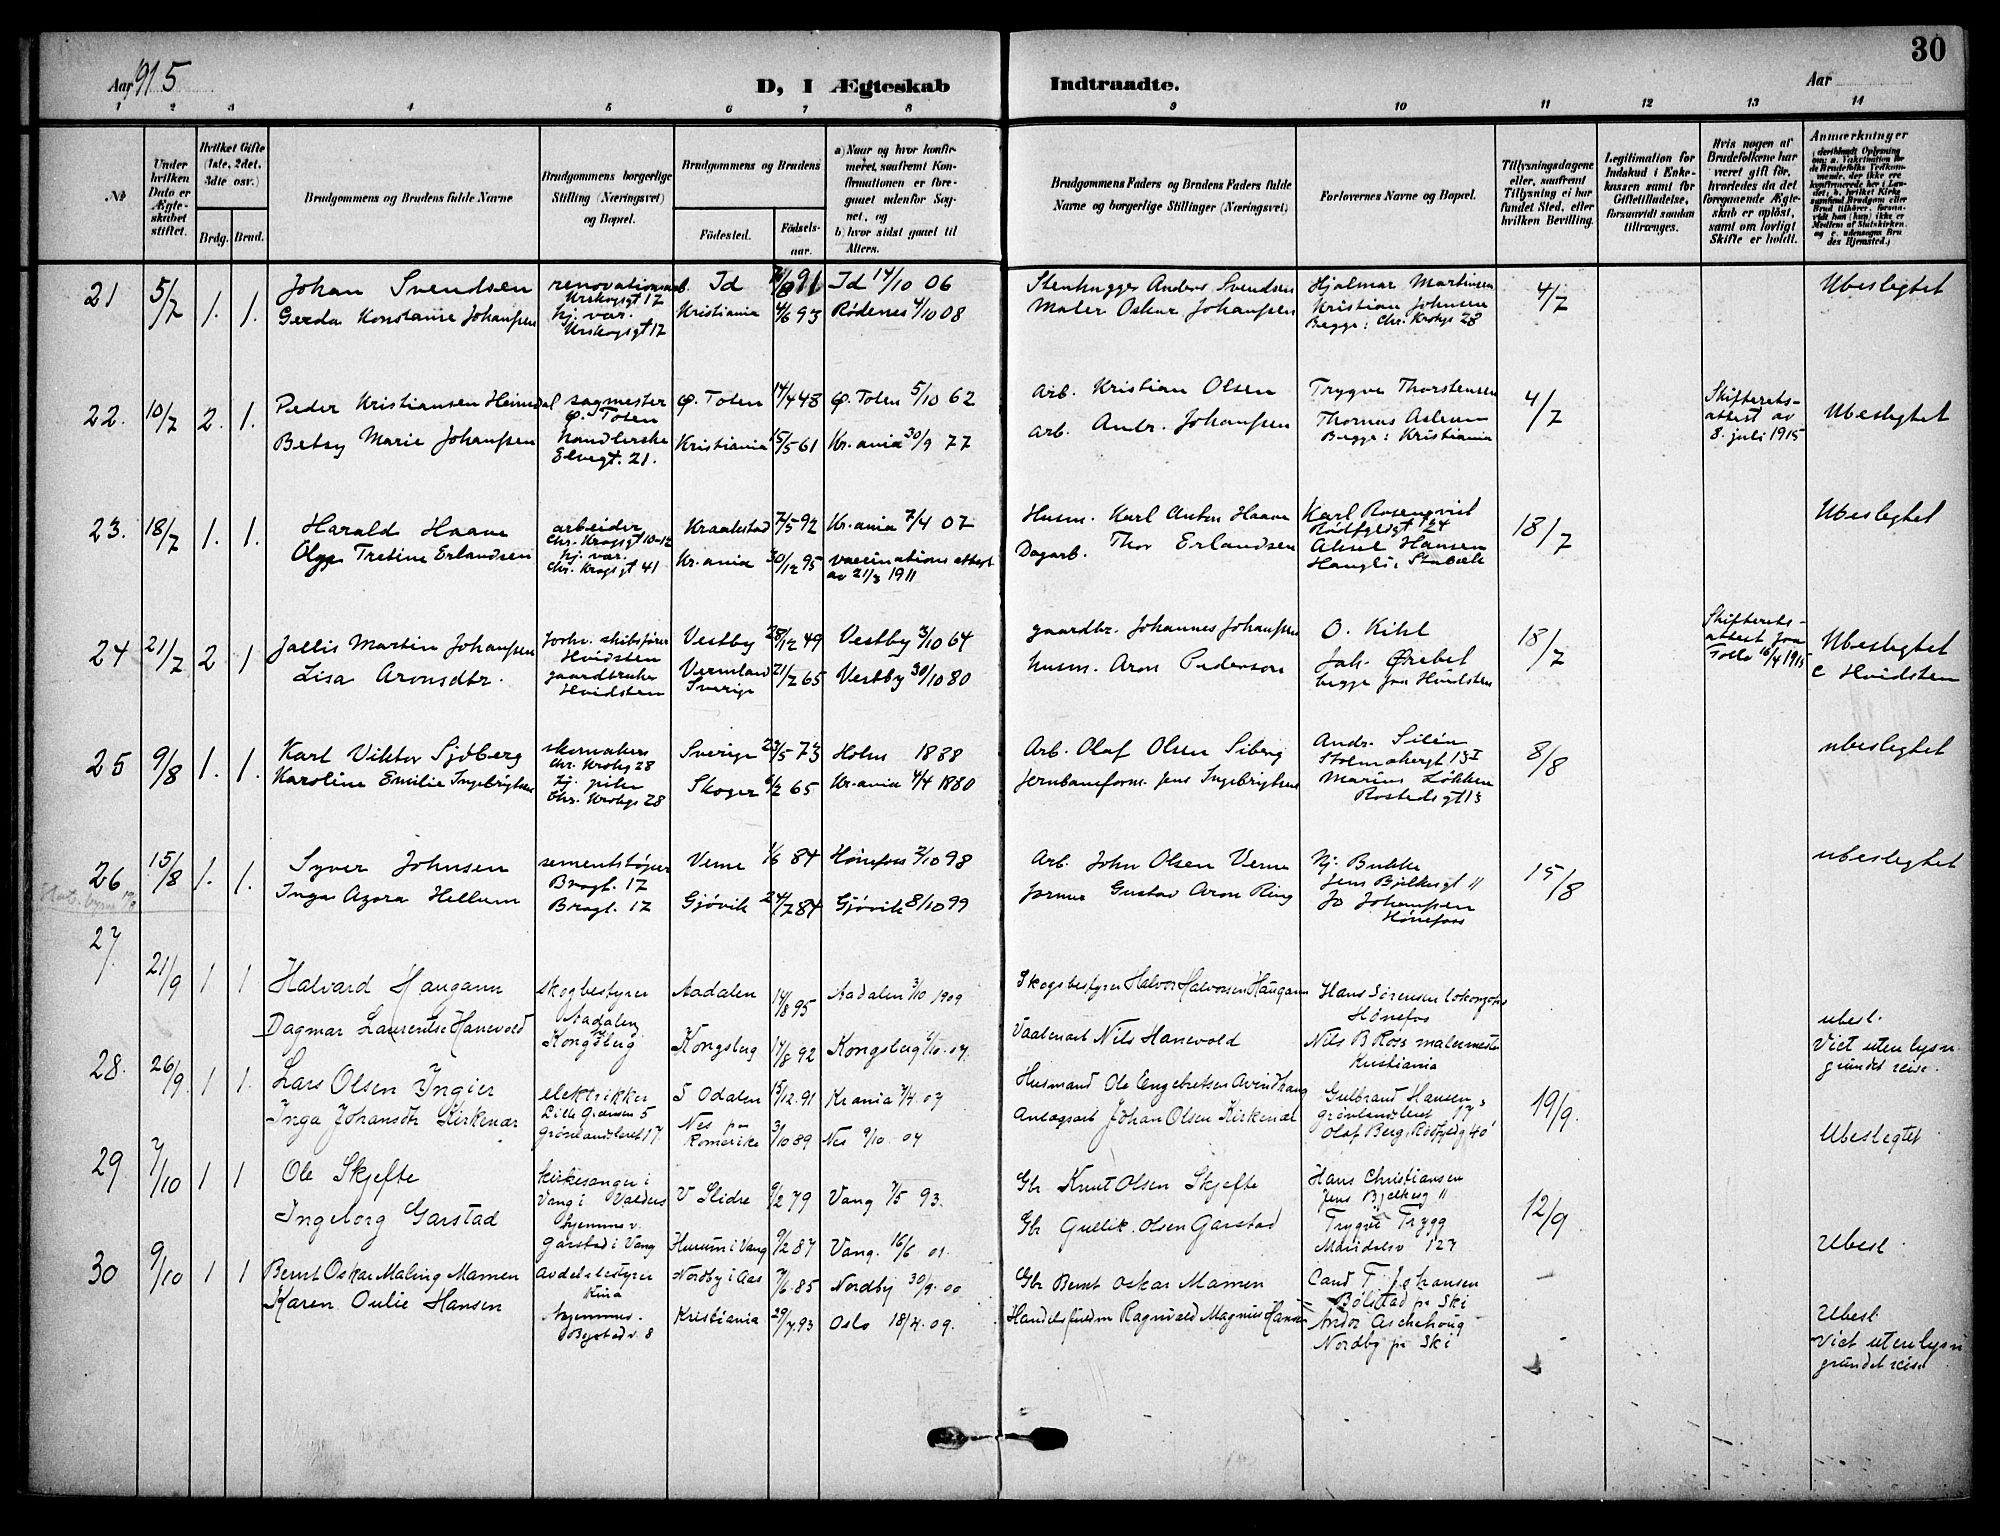 Aar 1915
D, I Ægteskab Indtraadte.
Aar
30
1 2 3 4 5 6 7 8 9 10 11 12 13 14
No
Under hvilken Dato er Ægteskabet stiftet.
Hvilket Gifte (1ste, 2det, 3dte osv.)
Brdg. Brud.
Brudgommens og Brudens fulde Navne
Brudgommens borgerlige Stilling (Næringsvei) og Bopæl.
Brudgommens og Brudens
Fødested. Fødselsaar.
a) Naar og hvor konfirmeret, saafremt Konfirmationen er foregaaet udenfor Sognet, og
b) hvor sidst gaaet til Alters.
Brudgommens Faders og Brudens Faders fulde Navne og borgerlige Stillinger (Næringsvei)
Forlovernes Navne og Bopæl.
Tillysningsdagene eller, saafremt Tillysning ei har fundet Sted, efter hvilken Bevilling.
Legitimation for Indskud i Enkekassen samt for Giftetilladelse, forsaavidt saadan tiltrænges.
Hvis nogen af Brudefolkene har været gift før, hvorledes da det foregaaende Ægteskab er opløst, samt om lovligt Skifte er holdt.
Anmærkninger
21 5/7 1. 1.
Johan Svendsen
Gerda Konstanse Johanssen
Urskogsgt 17
hj. vær.
Urskogsgt 17
Id
Kristiania 4/6 93
Id 14/10 06
Rødenes 4/10 08
Stenhugger Anders Svendsen
Maler Oskar Johanssen
Hjalmar Martinsen
Kristian Johnsen
Begge: Chr. Krohgs 28
4/7
Ubeslegtet
22. 10/7 2. 1.
Peder Kristiansen Heimdal
Betsy Marie Johanssen
sagmester
Ø. Toten
handlerske
Elvegt. 21.
Ø. Toten 14/4 48
Kristiania 15/5 61
Ø. Toten 5/10 62
Kr.ania 30/9 77
Arb. Kristian Olsen
Arb. Andr. Johanssen
Trygve Thorstensen
Thomas
Begge: Kristiania
4/7
Skifteretsattest av 8. juli 1915
Ubeslegtet
23. 18/7 1. 1.
Harald Haave
Olga Tretine Erlandsen
arbeider
Chr. Krogsgt 10-12
hj. vær.
Chr. Krogsgt 41
Kraakstad 7/5 92
Kr.ania 30/12 95
Kr.ania 7/4 07
vaccinations attest
av 21/3 1911
Husm. Karl Anton Haave
Dagarb. Thor Erlandsen
Karl Rosenqvist
24
Aksel Hansen
Stabæk
18/7
Ubeslegtet
24 21/7 2 1
Jallis Martin Johanssen
Lisa Aronsdtr.
forhv. skibsfører
Hvidsten
gaardbruker
Hvidsten
Vestby 28/12 49
Vermland
Sverige 21/7 65
Vestby 3/10 64
Vestby 30/10 80
gaardbr. Johannes Johanssen
husm. Aron Pederson
O. Kihl
Joh. Ørebet
begge fra Hvidsten
18/7
Skifteretsattest fra Follo 16/4 1915
Ubeslegtet
c Hvidsten
25 9/8 1. 1.
Karl Viktor Sjöberg
Karoline Emilie Ingebrigtsen
skomakers
Chr. Krohgs 28
hj. pike
Chr. Krohgs 28
Sverige 23/5 73
Skoger 6/2 65
Holm 1888
Kr.ania 4/4 1880
Arb. Olaf Olsen Siberg
Jernbaneform. Jens Ingebrigtsen
Andr. Silén
Stolmakergt 13 I
Marius Løkken
Rostedsgt 13
8/8
ubeslegtet
26 15/8 1. 1.
Syver Johnsen
Inga Azora Hellum
sementstøper
Bragt. 17
Bragt. 17
Verne 1/6 84
Gjøvik 24/7 84
Hønefoss 2/10 98
Gjøvik 8/10 99
Arb. John Olsen Verne
Gustav Aron Ring
Hj. Bukke
Jens Bjelkesgt 11
Jo Johanssen
Hønefoss
15/8
ubeslegtet
27 21/9 1 1
Halvard Haugann
Dagmar Laurentse Hanevold
skogbestyrer
Aadalen
Kongsberg
Aadalen 14/8 95
Kongsberg 17/8 92
Aadalen 3/10 1909
Kongsberg 6/10 07
Skogsbestyrer Halvor Halvorsen Haugann
Nils Hanevold
Hans Sørensen
Hønefos
Nils B Ross malermester
Kristiania
ubesl.
Viet uten lysn.
grundet reise.
28. 26/9 1 1.
Lars Olsen Ingier
Inga Johansdtr Kirkenær
elektrikker
Lille Grænsen 5
Grønlandleret 17
S Odalen 15/12 91
Nes på
Romerike 3/10 89
Krania 7/4 07
Nes 9/10 04
Husmand Ole Engebretsen
Anlægsarb Johan Olsen Kirkenær
Gulbrand Hansen
Grønlandleret 17
Olaf Berg, 40
19/9.
Ubeslegtet
29 7/10 1 1
Ole Skjefte
Ingeborg Garstad
kirkesanger i
Vang i Valders
hjemme v.
Garstad i Vang
V Slidre 9/2 79
Hurum i Vang 9/2 87
Vang 7/5 93.
Vang. 16/6 01.
Gbr Knut Olsen Skjefte
Gbr Gullik Olsen Garstad
Hans Christiansen
Jens Bjelkesg 11
Trygve Trygg
Maridalsv 127
12/9
Ubesl
30 9/10 1 1
Bernt Oskar Maling Mamen
Karen Oulie Hansen
Avdelsbestyrer
Kina
hjemme.
Bygdø v. 8
Nordby i Aas 7/6 85
Kristiania 29/7 93
Nordby 30/9 00
Oslo 18/4 09.
Gbr Bernt Oskar Mamen
Handelsfuldm Ragnvald Magnus Hansen
Cand T. Johansen
Bølstad på Ski
Andor Aschehoug
Nordby på Ski
Ubesl
Viet uten lysn
grundet reise